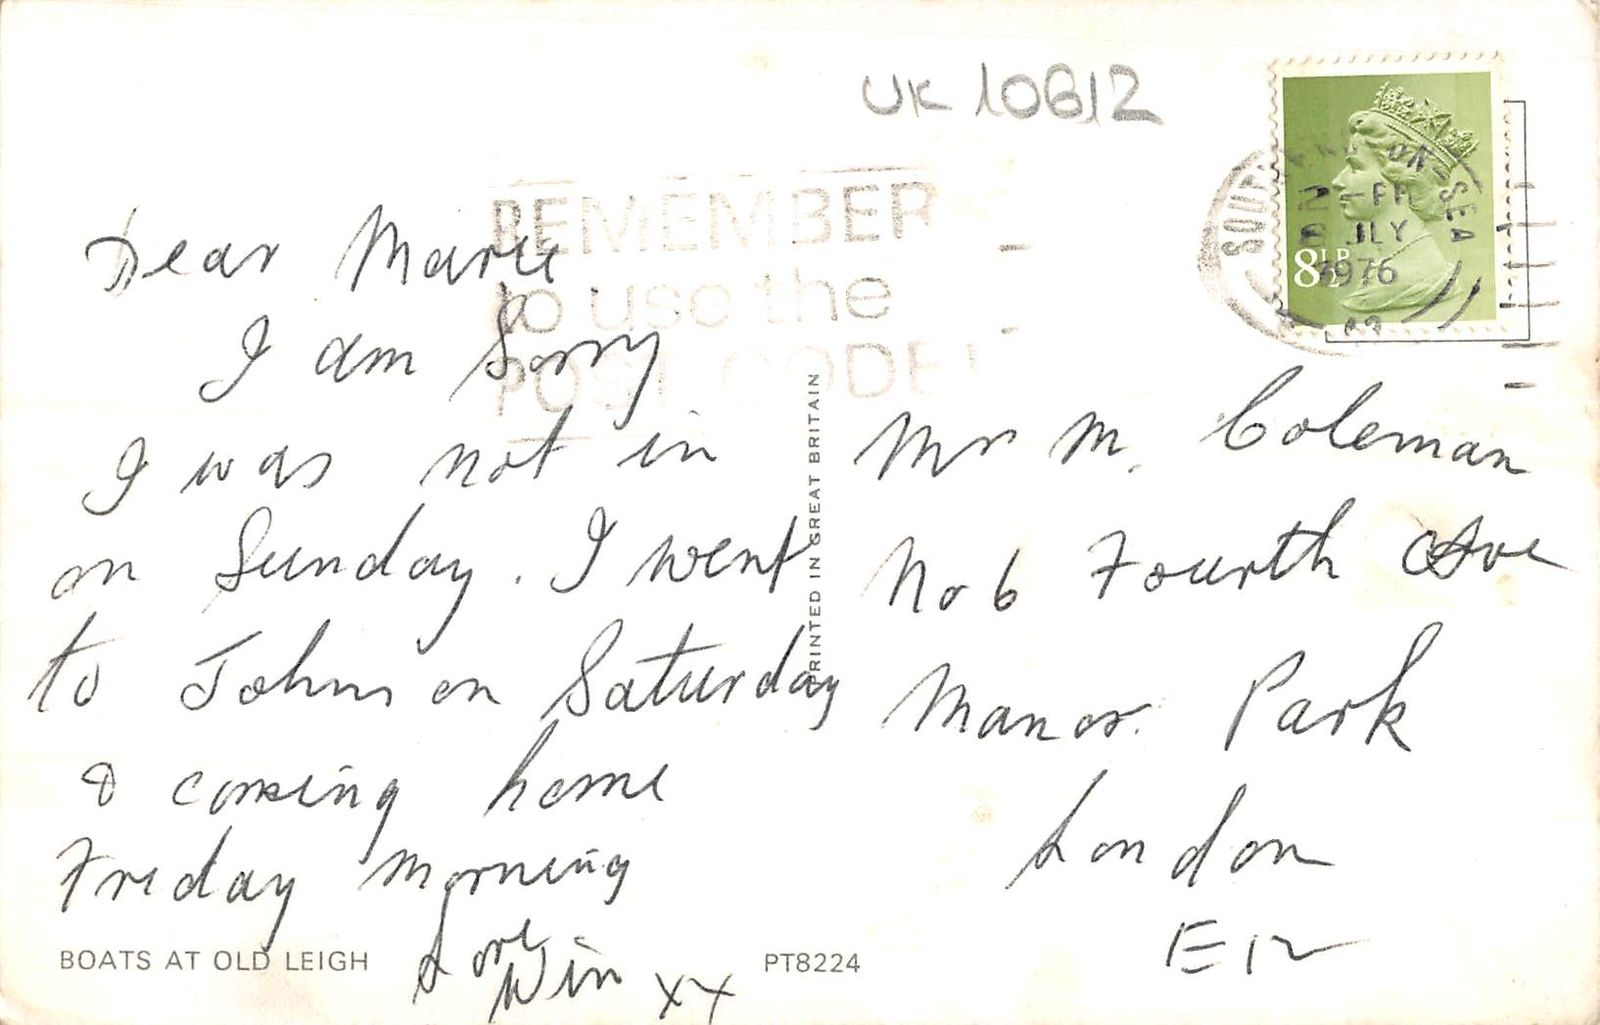 UK 10612
REMEMBER
to use the
POST CODE!
SOUTHEND-ON-SEA
PM
JLY
1976
8½P
Dear Marie
I am Sorry
I was not in
on Sunday. I went
to Johns on Saturday
& coming home
Friday morning
Love
Win xx
BOATS AT OLD LEIGH
PT8224
PRINTED IN GREAT BRITAIN
Mr M. Coleman
No 6 Fourth Ave
Manor Park
London
E12